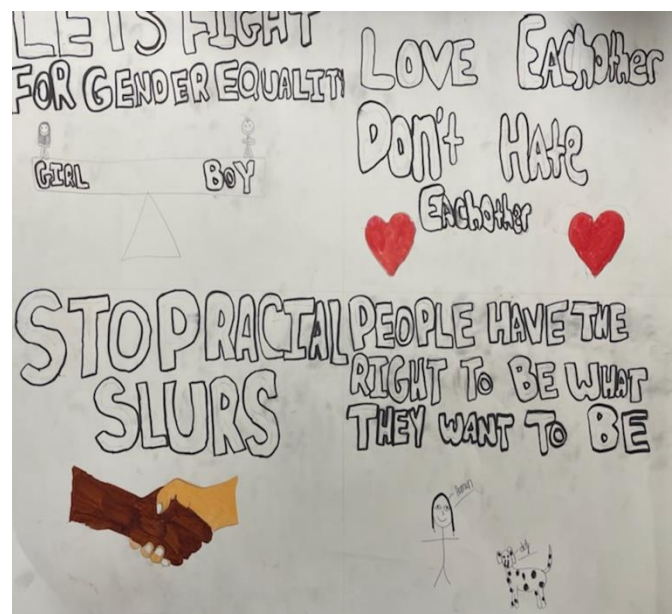 LETS FIGHT
FOR GENDER EQUALITY
GIRL BOY
LOVE EachOther
Don't Hate
EachOther
STOP RACIAL
SLURS
PEOPLE HAVE THE
RIGHT TO BE WHAT
THEY WANT TO BE
human